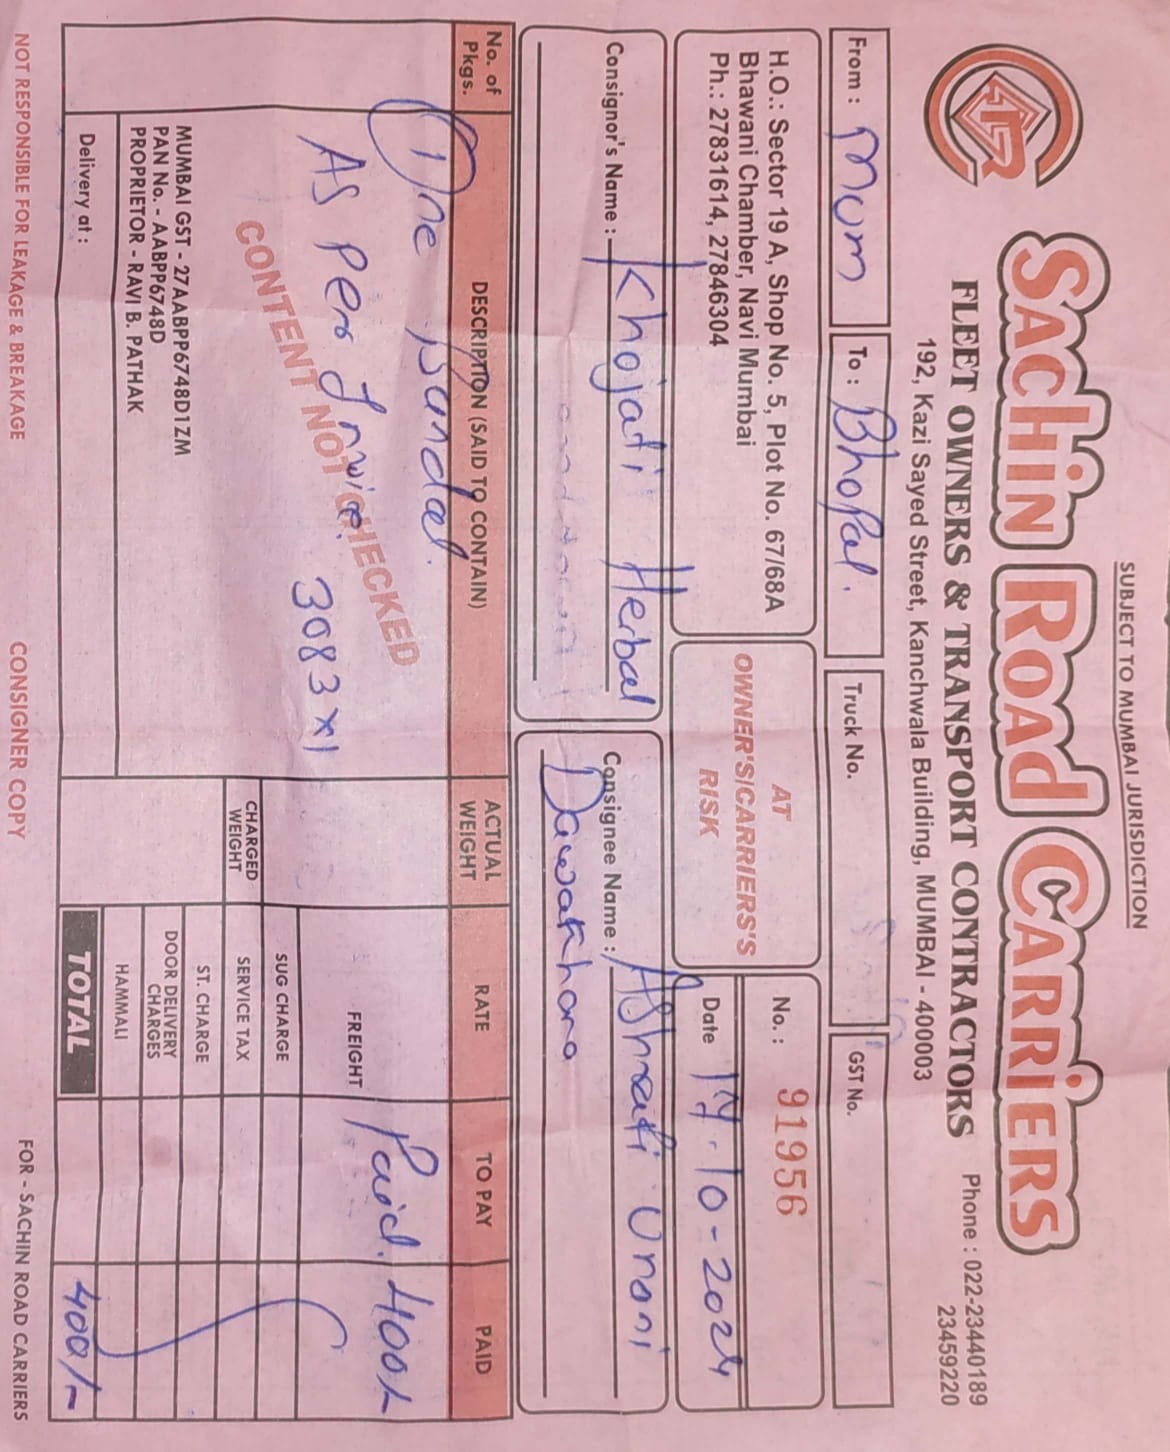 SUBJECT TO MUMBAI JURISDICTION
SACHIN ROAD CARRIERS
FLEET OWNERS & TRANSPORT CONTRACTORS
Phone : 022-23440189
23459220
192, Kazi Sayed Street, Kanchwala Building, MUMBAI - 400003
From : Mum
To : Bhopal.
Truck No.
GST No.
H.O.: Sector 19 A, Shop No. 5, Plot No. 67/68A
Bhawani Chamber, Navi Mumbai
Ph.: 27831614, 27846304
AT
OWNER'S/CARRIERS'S
RISK
No. : 91956
Date 17-10-2024
Consignor's Name : Khojati Herbal
Consignee Name : AShrafi Unani
Dawakhana
No. of Pkgs.
DESCRIPTION (SAID TO CONTAIN)
ACTUAL WEIGHT
RATE
TO PAY
PAID
One Bundal.
As per Invoice.
3083 x1
CONTENT NOT CHECKED
FREIGHT
Paid. 400/-
SUG CHARGE
CHARGED WEIGHT
SERVICE TAX
ST. CHARGE
DOOR DELIVERY CHARGES
HAMMALI
MUMBAI GST - 27AABPP6748D1ZM
PAN No. - AABPP6748D
PROPRIETOR - RAVI B. PATHAK
Delivery at :
TOTAL
400/-
NOT RESPONSIBLE FOR LEAKAGE & BREAKAGE
CONSIGNER COPY
FOR - SACHIN ROAD CARRIERS